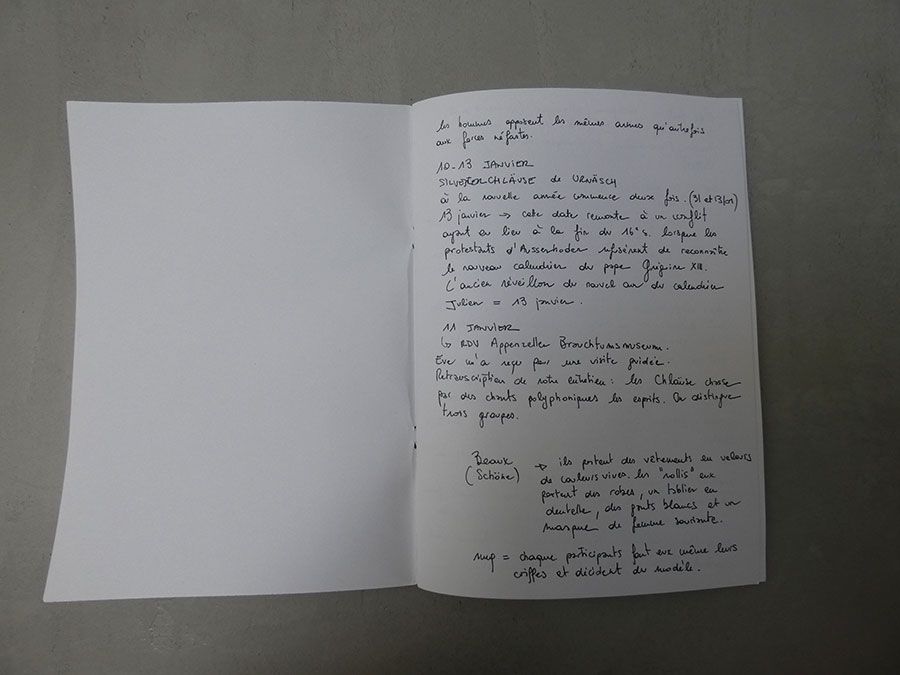 les hommes opposent les mêmes armes qu'autrefois
aux forces néfastes.
10-13 JANVIER
SILVESTERCHLÄUSE de URNÄSCH
à la nouvelle année commence deux fois. (31 et 13/01)
13 janvier → cette date remonte à un conflit
ayant eu lieu à la fin du 16e s. lorsque les
protestants d'Ausserhoden refusèrent de reconnaître
le nouveau calendrier du pape Grégoire XIII.
L'ancien réveillon du nouvel an du calendrier
Julien = 13 janvier.
11 JANVIER
↳ RDV Appenzeller Brauchtumsmuseum.
Eve m'a reçu par une visite guidée.
Retranscription de notre entretien : les Chläuse chasse
par des chants polyphoniques les esprits. On distingue
trois groupes.
Beaux → ils portent des vêtements en velours
(Schöne) de couleurs vives. les "rollis" eux
portent des robes, un tablier en
dentelle, des gants blancs et un
masque de femme souriante.
= chaque participants font eux même leurs
coiffes et décident du modèle.